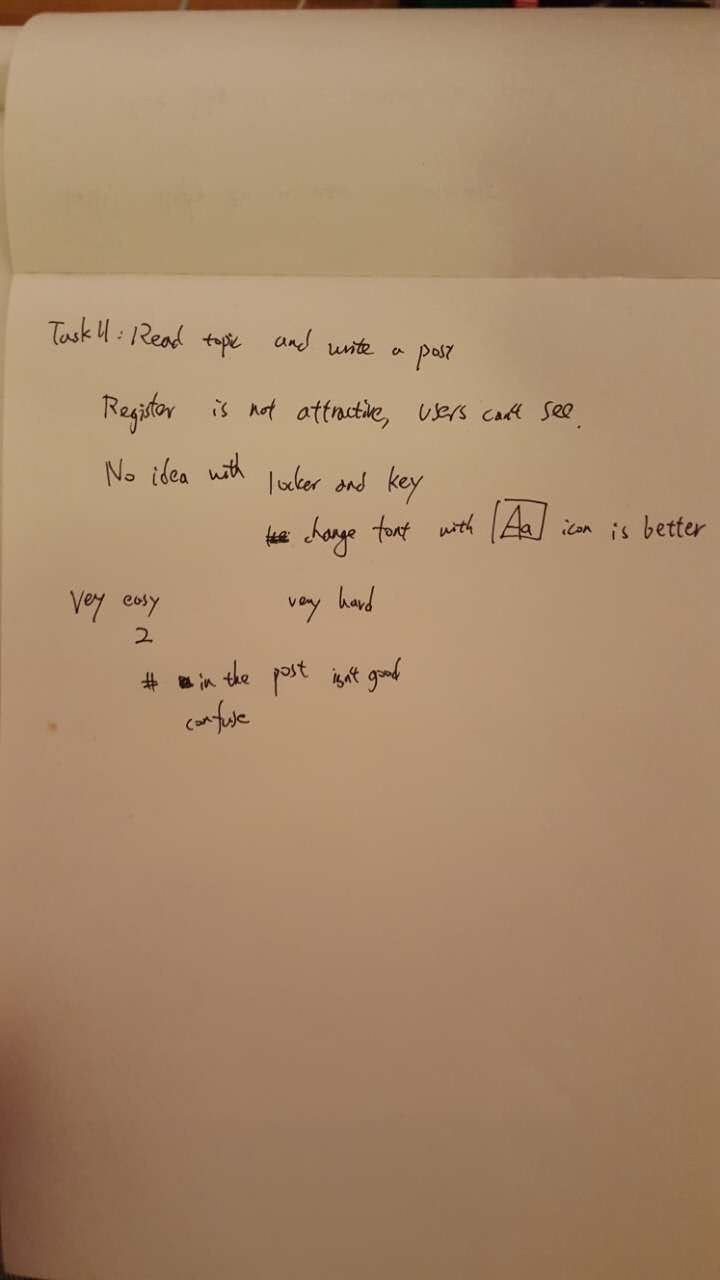 Task 4: Read topic and write a post
Register is not attractive, users can't see.
No idea with locker and key
change font with Aa icon is better
Vey easy very hard
2
# in the post isn't good
confuse